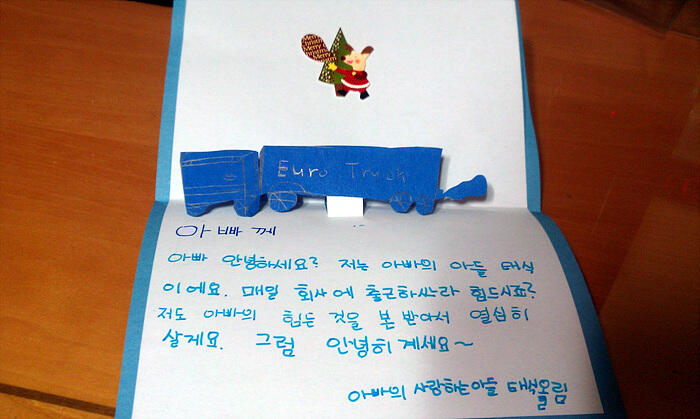 Merry Christmas Merry Christmas Merry
Euro Truck
아빠께
아빠 안녕하세요? 저는 아빠의 아들 태식
이에요. 매일 회사에 출근하싸라 힘드시죠?
저도 아빠의 힘든 것을 본받아서 열심히
살게요. 그럼 안녕히계세요~
아빠의 사랑하는아들 태식올림